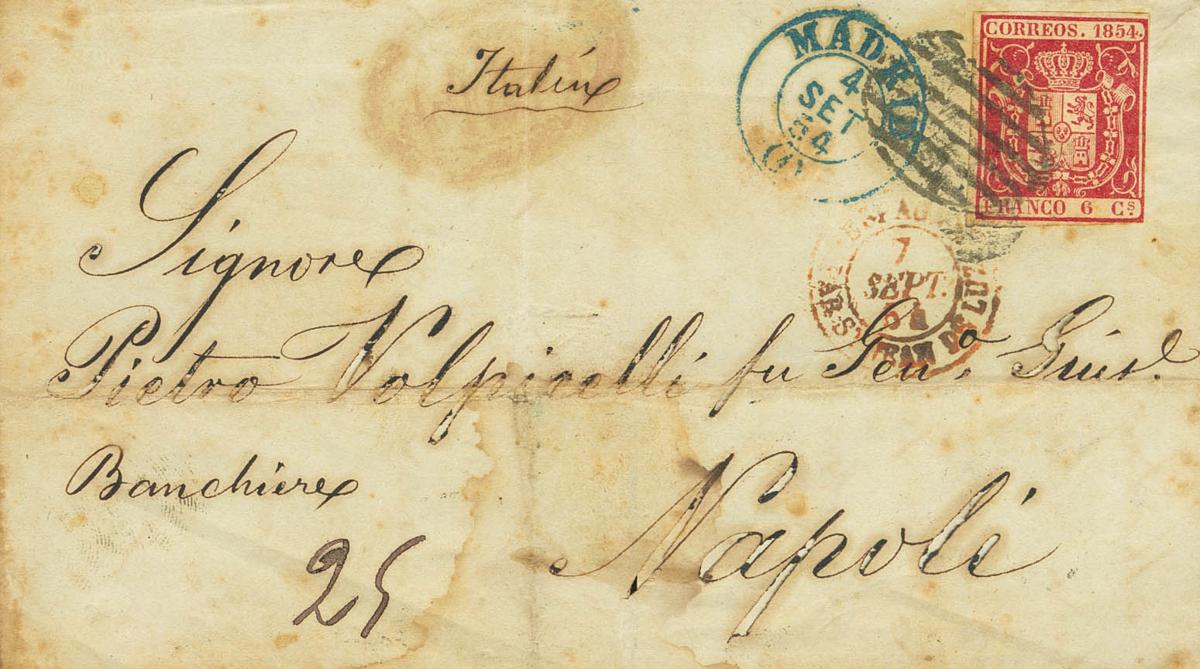 Italia
MADRID
4
SET
54
(1)
CORREOS. 1854.
FRANCO 6 Cs.
7
SEPT.
54
JEAN DE LUZ
Signore
Pietro Volpicelli fu Genº Gius.
Banchiere
25
Napoli